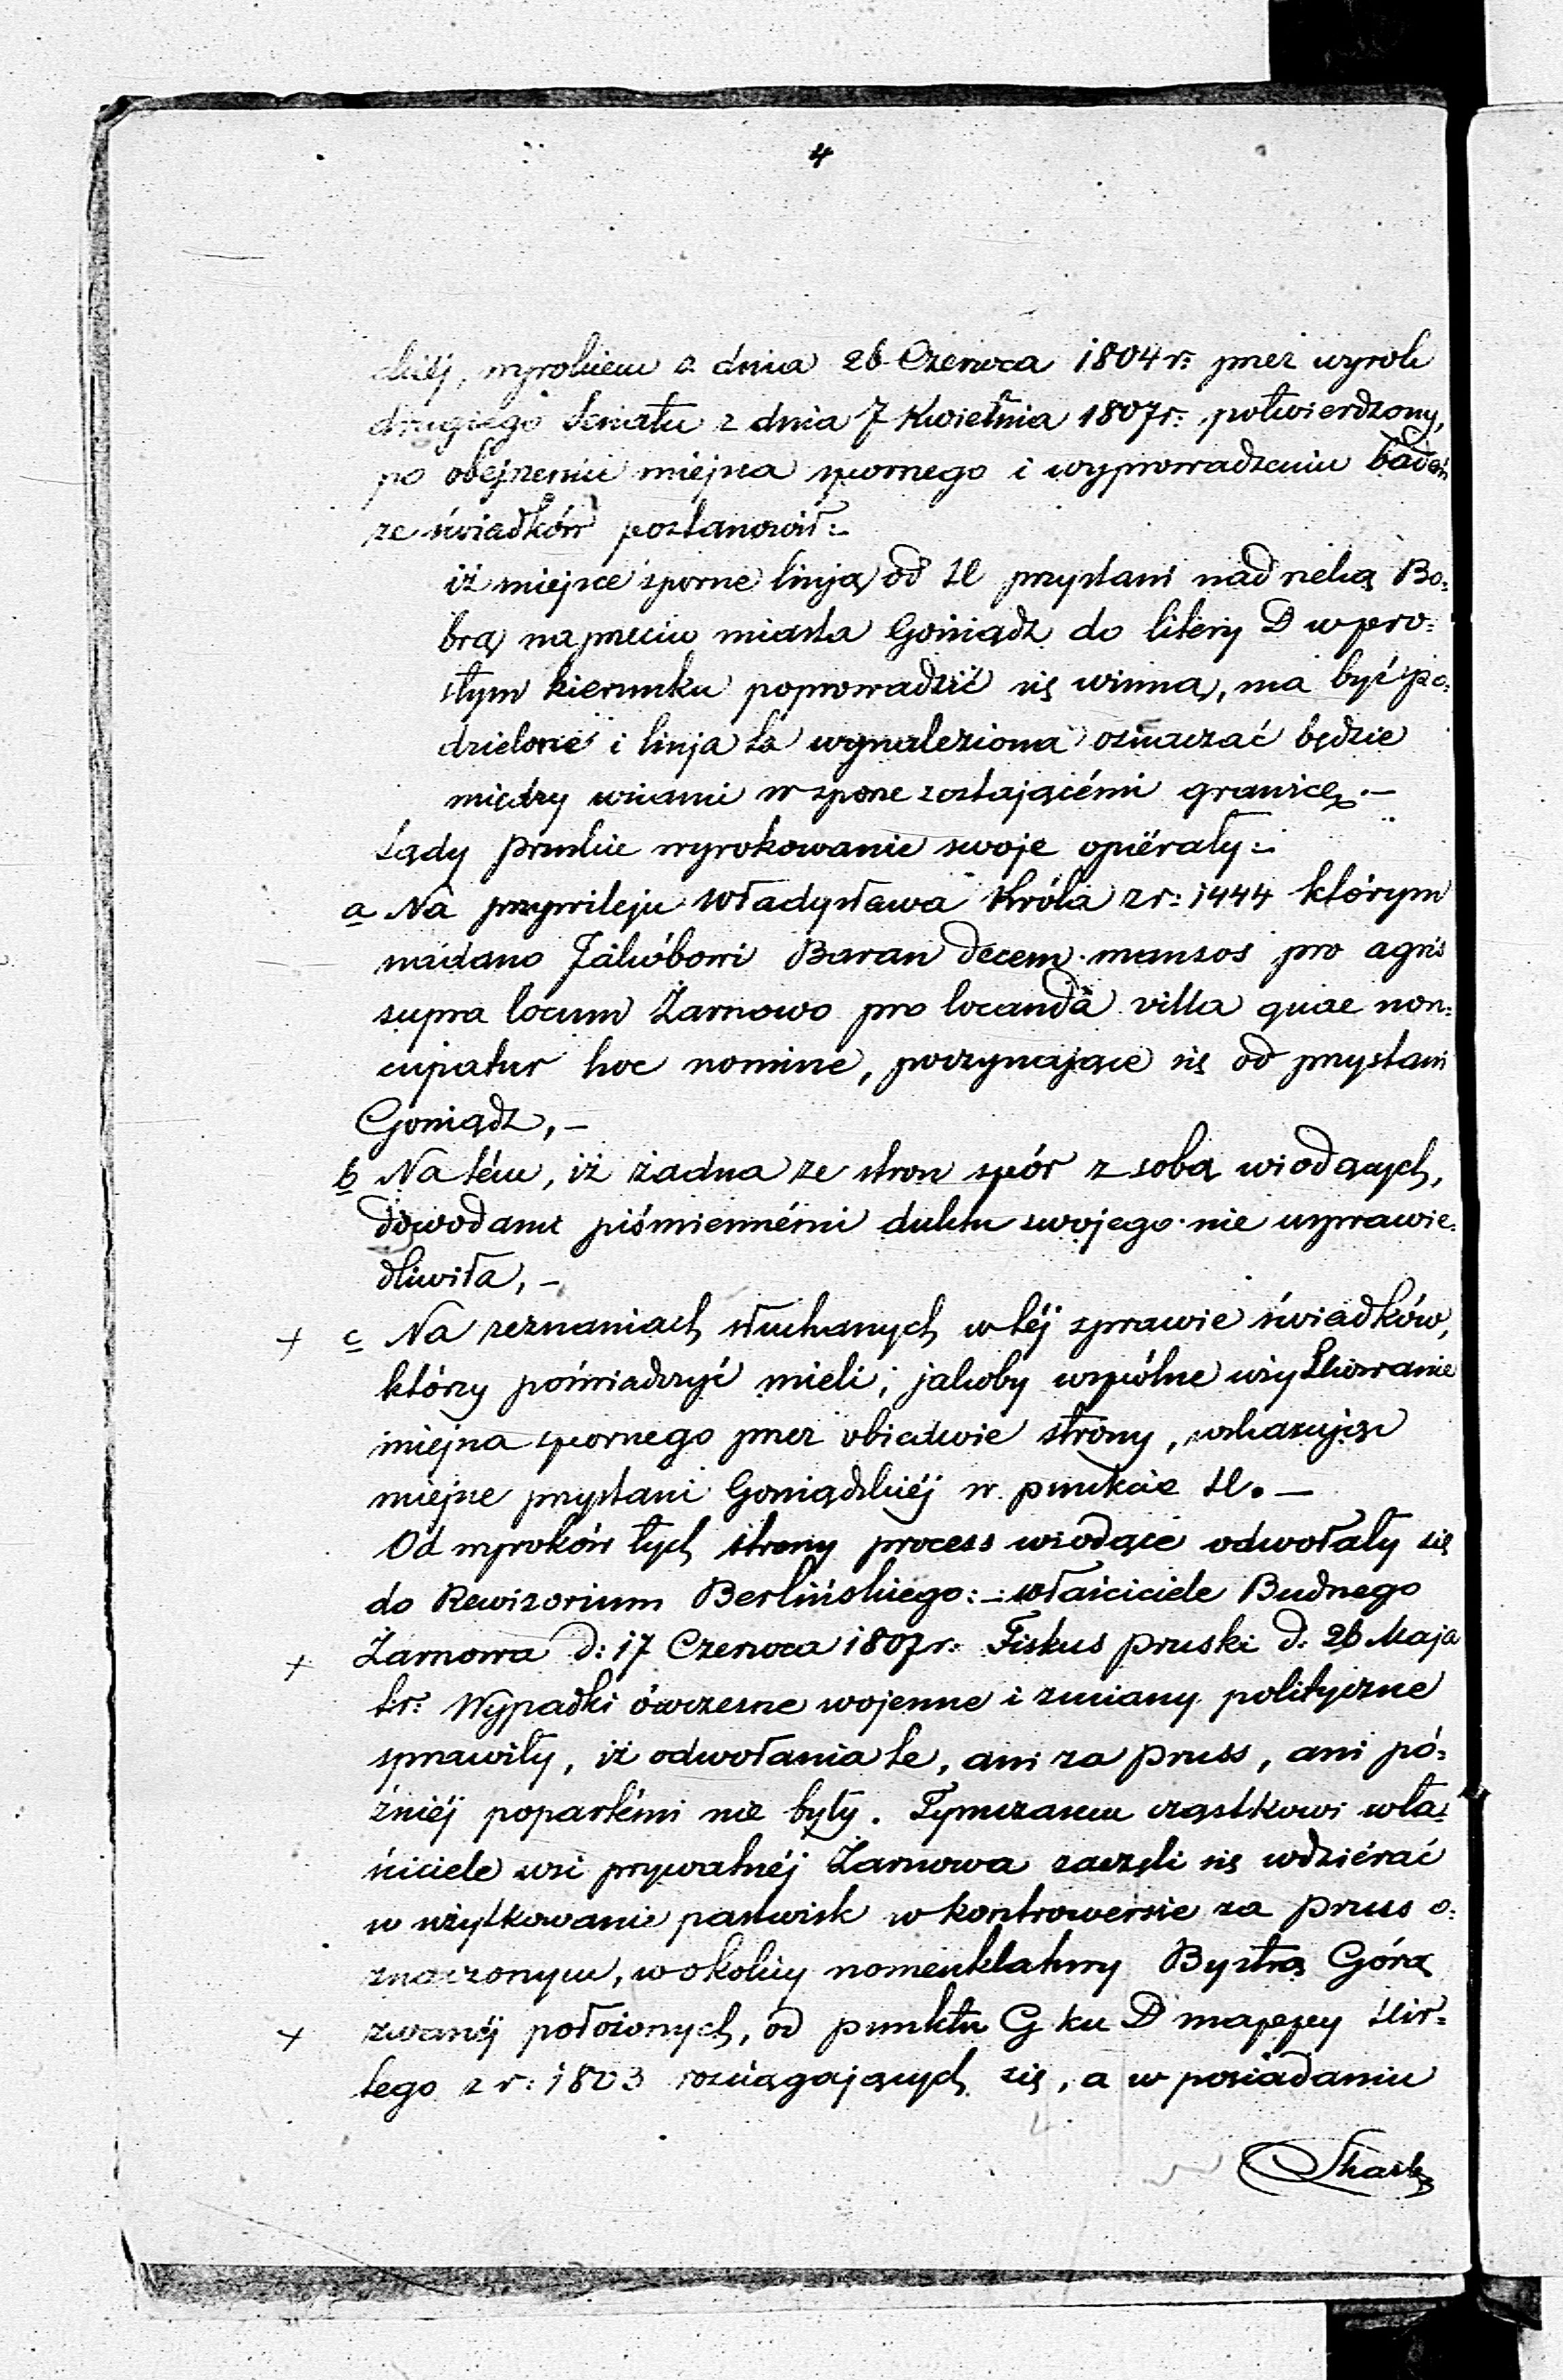 4
skiéj, wyrokiem z dnia 26 Czerwca 1804 r: przez wyrok
drugiego Senatu z dnia 7 Kwietnia 1807 r: potwierdzony,
po obejrzeniu miejsca spornego i wyprowadzeniu badań
ze świadków postanowił:–
iż miejsce sporne linją od H przystani nad rzeką Bo:
brą naprzeciw miasta Goniądz do litery D w pro:
stym kierunku poprowadzić się winną, ma być po:
dzielone i linja ta wynaleziona oznaczać będzie
między wsiami w sporze zostającémi granicę.–
Sądy pruskie wyrokowanie swoje opiérały:–
a Na przywileju Władysława Króla z r: 1444 którym
nadano Jakóbowi Baran decem mansos pro agris
supra locum Żarnowo pro locanda villa quae non:
cupatur hoc nomine, poczynające się od przystani
Goniądz,–
b Na tém, iż żadna ze stron spór z sobą wiodących,
dowodami piśmiennémi duktu swojego nie usprawie:
dliwiła,–
+ c Na zeznaniach słuchanych w téj sprawie świadków,
którzy poświadczyć mieli, jakoby wspólne użytkowanie
miejsca spornego przez obiedwie strony, wskazując
miejsce przystani Goniądzkiéj w punkcie H.–
Od wyroków tych strony process wiodące odwołały się
do Rewizorium Berlińskiego:– właściciele Budnego
+ Żarnowa d: 17 Czerwca 1807 r: Fiskus pruski d: 26 Maja
t.r: Wypadki ówczesne wojenne i zmiany polityczne
sprawiły, iż odwołania te, ani za Pruss, ani pó:
źniéj popartémi nie były. Tymczasem cząstkowi wła:
ściciele wsi prywatnéj Żarnowa zaczęli się wdziérać
w użytkowanie pastwisk w kontrowersie za Prus o:
znaczonym, w okolicy nomenklatury Bystrą Górą
+ zwanéj położonych, od punktu G ku D mappy
tego z r: 1803 rozciągających się, a w posiadaniu